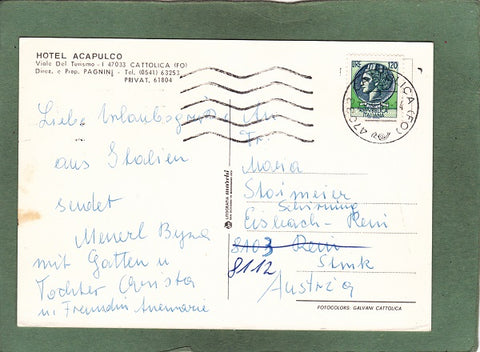 HOTEL ACAPULCO
Viale Del Turismo - I 47033 CATTOLICA (FO)
Direz. e Prop. PAGNINI - Tel. (0541) 63253
PRIVAT. 61804
Liebe Urlaubsgrüße
aus Italien
sendet
Menerl
mit Gatten u
Tochter Christa
u. Freundin Annemarie
LIRE 120
An
Fr.
Maria
Stoimeier
Schirning
Eisbach - Rein
8103 Rein
8112
Austria
FOTOCOLORS: GALVANI CATTOLICA